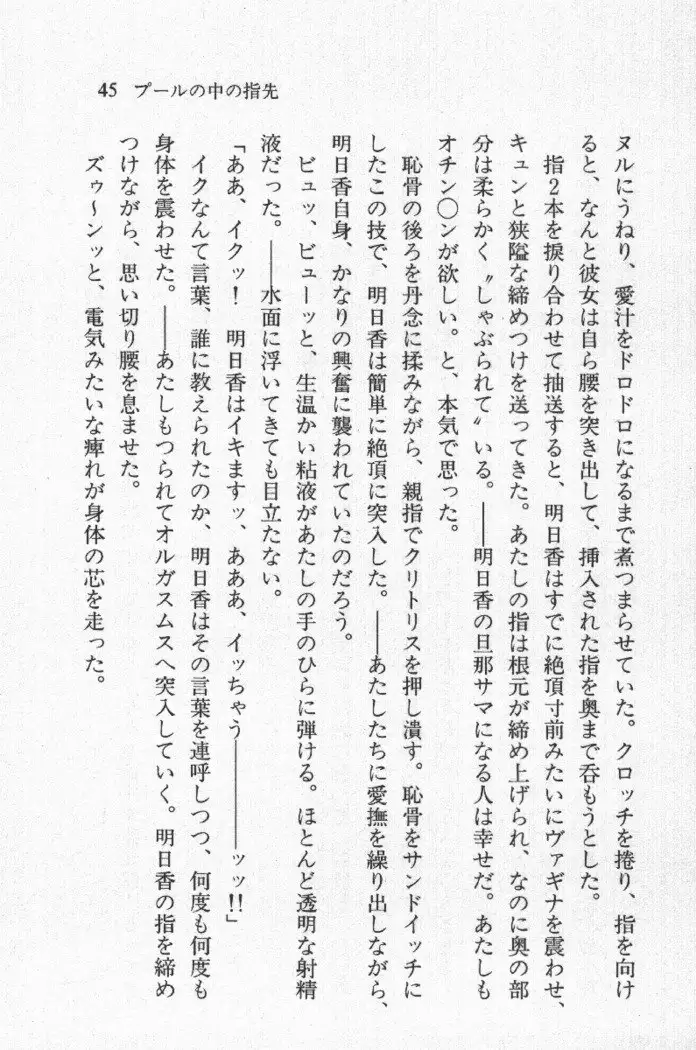 45 プールの中の指先
ヌルにうねり、愛汁をドロドロになるまで煮つまらせていた。クロッチを捲り、指を向け
ると、なんと彼女は自ら腰を突き出して、挿入された指を奥まで呑もうとした。
指2本を捩り合わせて抽送すると、明日香はすでに絶頂寸前みたいにヴァギナを震わせ、
キュンと狭隘な締めつけを送ってきた。あたしの指は根元が締め上げられ、なのに奥の部
分は柔らかく〝しゃぶられて〟いる。――明日香の旦那サマになる人は幸せだ。あたしも
オチン〇ンが欲しい。と、本気で思った。
恥骨の後ろを丹念に揉みながら、親指でクリトリスを押し潰す。恥骨をサンドイッチに
したこの技で、明日香は簡単に絶頂に突入した。――あたしたちに愛撫を繰り出しながら、
明日香自身、かなりの興奮に襲われていたのだろう。
ビュッ、ビューッと、生温かい粘液があたしの手のひらに弾ける。ほとんど透明な射精
液だった。――水面に浮いてきても目立たない。
「ああ、イクッ! 明日香はイキますッ、あああ、イッちゃう――――ッッ!!」
イクなんて言葉、誰に教えられたのか、明日香はその言葉を連呼しつつ、何度も何度も
身体を震わせた。――あたしもつられてオルガスムスへ突入していく。明日香の指を締め
つけながら、思い切り腰を息ませた。
ズゥ〜ンッと、電気みたいな痺れが身体の芯を走った。